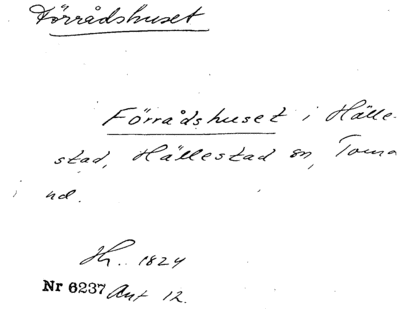 Förrådshuset
Förrådshuset i Hälle-
stad, Hällestad sn, Torna
hd.
Hr. 1824
Nr 6237 Ant 12.